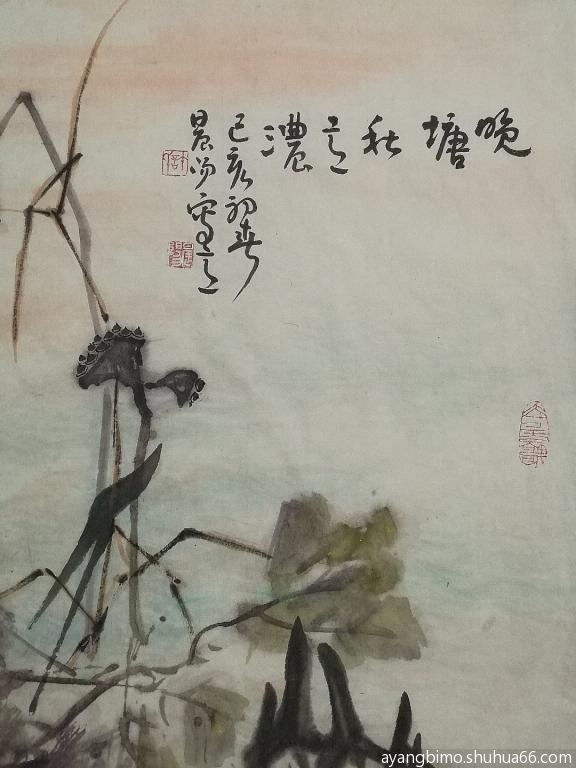 晚塘秋意濃
己亥初春
晨昜寫意
ayangbimo.shuhua66.com